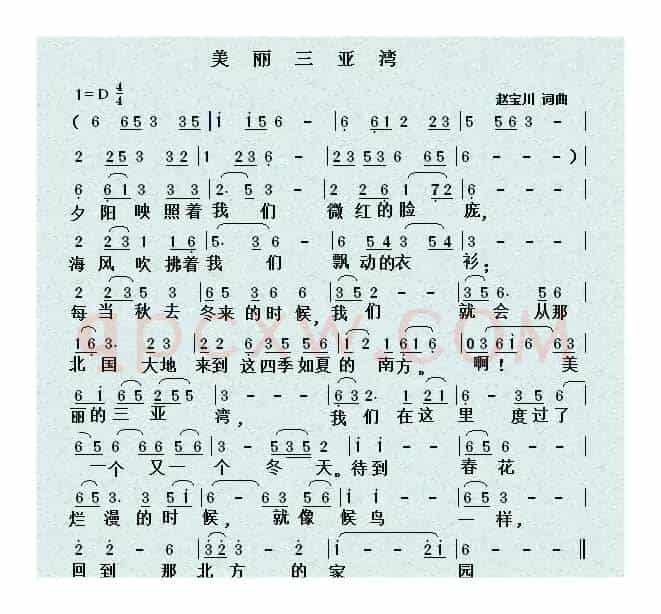 美丽三亚湾
1=D 4/4
赵宝川 词曲
( 6 653 35 | i i56 - | 6 612 23 | 5 563 - |
2 253 32 | 1 236 - | 23536 65 | 6 - - ) |
6 613 3 3 | 2. 53 - | 2 26 1 72 | 6 - - |
夕阳映照着我们 微红的脸庞,
2 231 16 | 5. 36 - | 6 543 54 | 3 - - |
海风吹拂着我们 飘动的衣衫;
2 235 3 | 65 36 6 | 352 - - | 356. 56 |
每当秋去 冬来的时候,我们 就会从那
163. 23 | 22 63556 | 12 1616 | 036i6 63 |
北国 大地 来到这四季如夏的 南方。 啊! 美
6i 65255 | 3 - - | 632. 121 | 6 - 16 |
丽的三亚 湾, 我们在这里 度过了
656 6656 | 3 - 5352 | i i - - | 656 - |
一个又一个 冬 天。待到 春花
653. 35i | 6 - 6356 | i i - - | 653 - |
烂漫的时候, 就像候鸟 一样,
2 2 - 6 | 323 - 2 | i - - 2i | 6 - - ‖
回到 那北方 的家 园
qpcxw.com